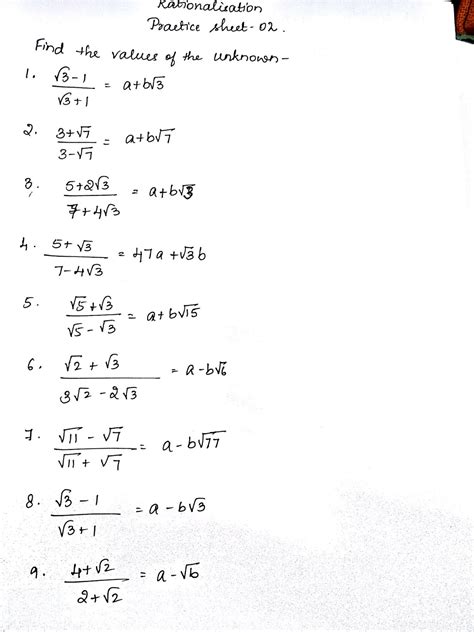 Rationalisation
Practice sheet-02.
Find the values of the unknown-
1. (√3-1)/(√3+1) = a+b√3
2. (3+√7)/(3-√7) = a+b√7
3. (5+2√3)/(7+4√3) = a+b√3
4. (5+√3)/(7-4√3) = 47a+√3b
5. (√5+√3)/(√5-√3) = a+b√15
6. (√2+√3)/(3√2-2√3) = a-b√6
7. (√11-√7)/(√11+√7) = a-b√77
8. (√3-1)/(√3+1) = a-b√3
9. (4+√2)/(2+√2) = a-√b